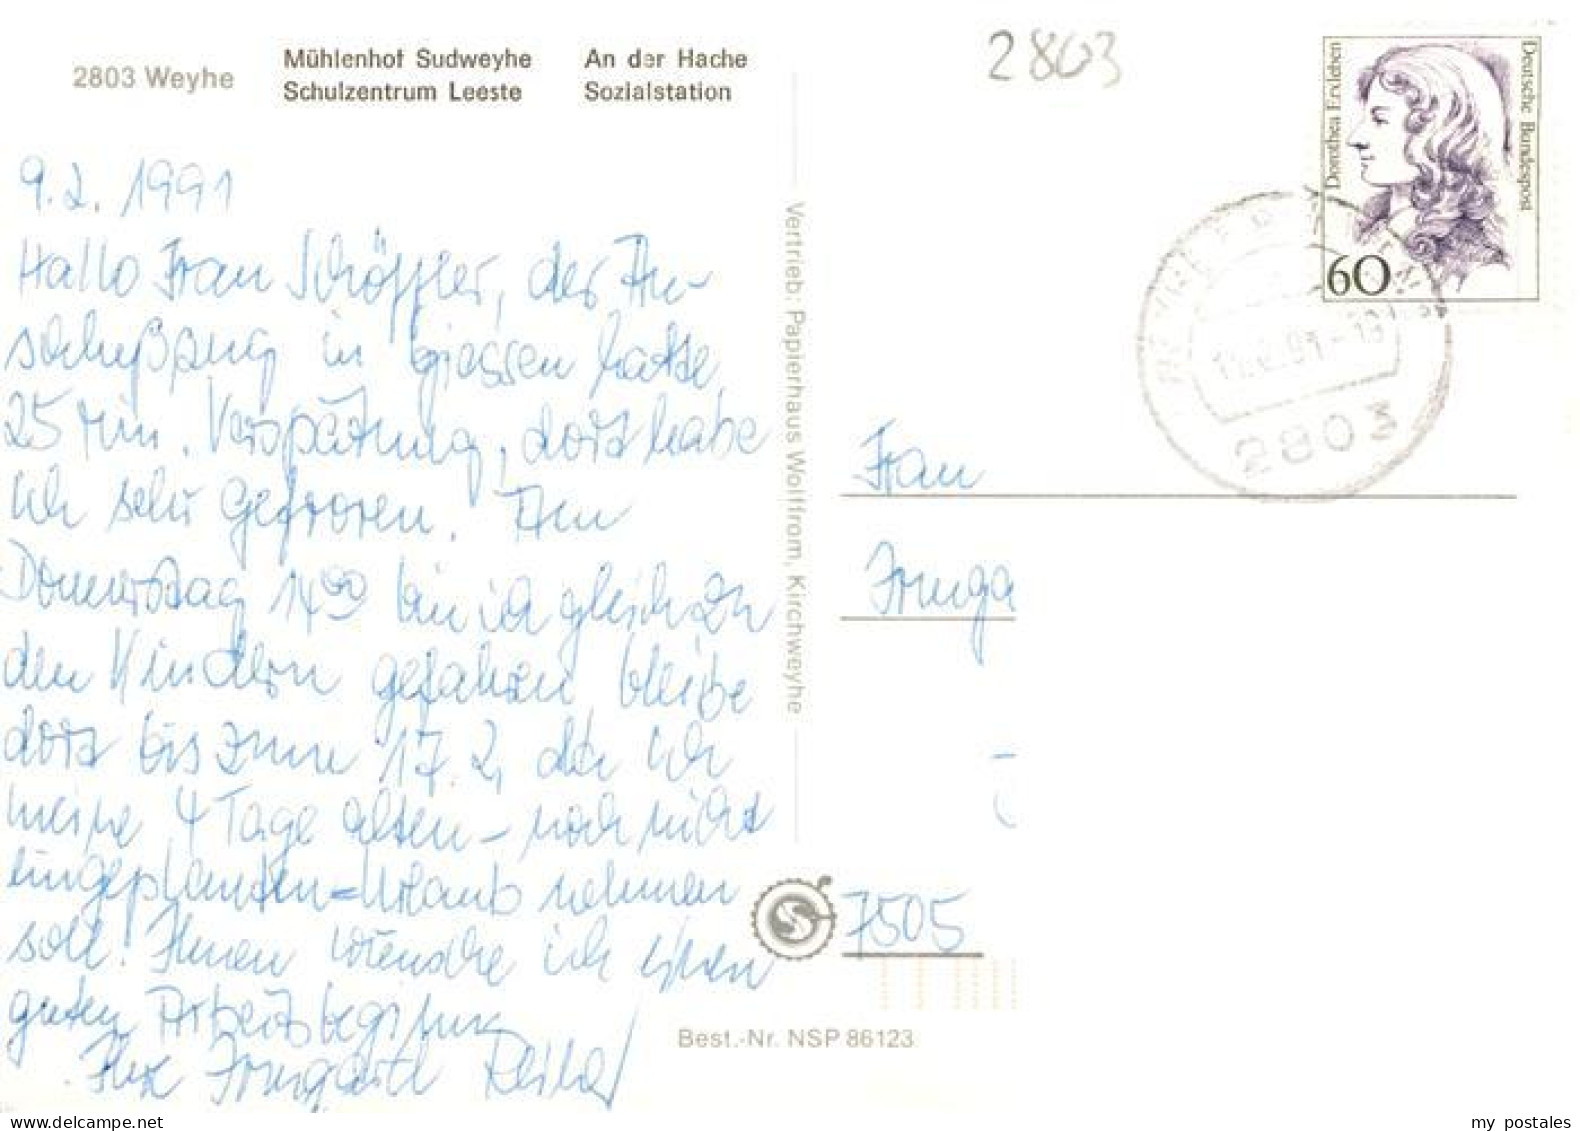 2803 Weyhe
Mühlenhof Sudweyhe An der Hache
Schulzentrum Leeste Sozialstation
2803
Dorothea Erxleben
Deutsche Bundespost
60
2803
9.2. 1991
Hallo Frau Schöffler, der An-
schlußzug in Giessen hatte
25 Min. Verspätung, dort habe
ich sehr gefroren. Am
Donnerstag 14 00 bin ich gleich zu
den Kindern gefahren bleibe
dort bis zum 17.2, da ich
meine 4 Tage alten - noch nicht
eingeplanten - Urlaub nehmen
soll. Ihnen wünsche ich einen
guten Arbeitsbeginn
Ihre Irmgard
Vertrieb: Papierhaus Wolffrom, Kirchweyhe
Frau
Irmga
7505
Best.-Nr. NSP 86123
my postales